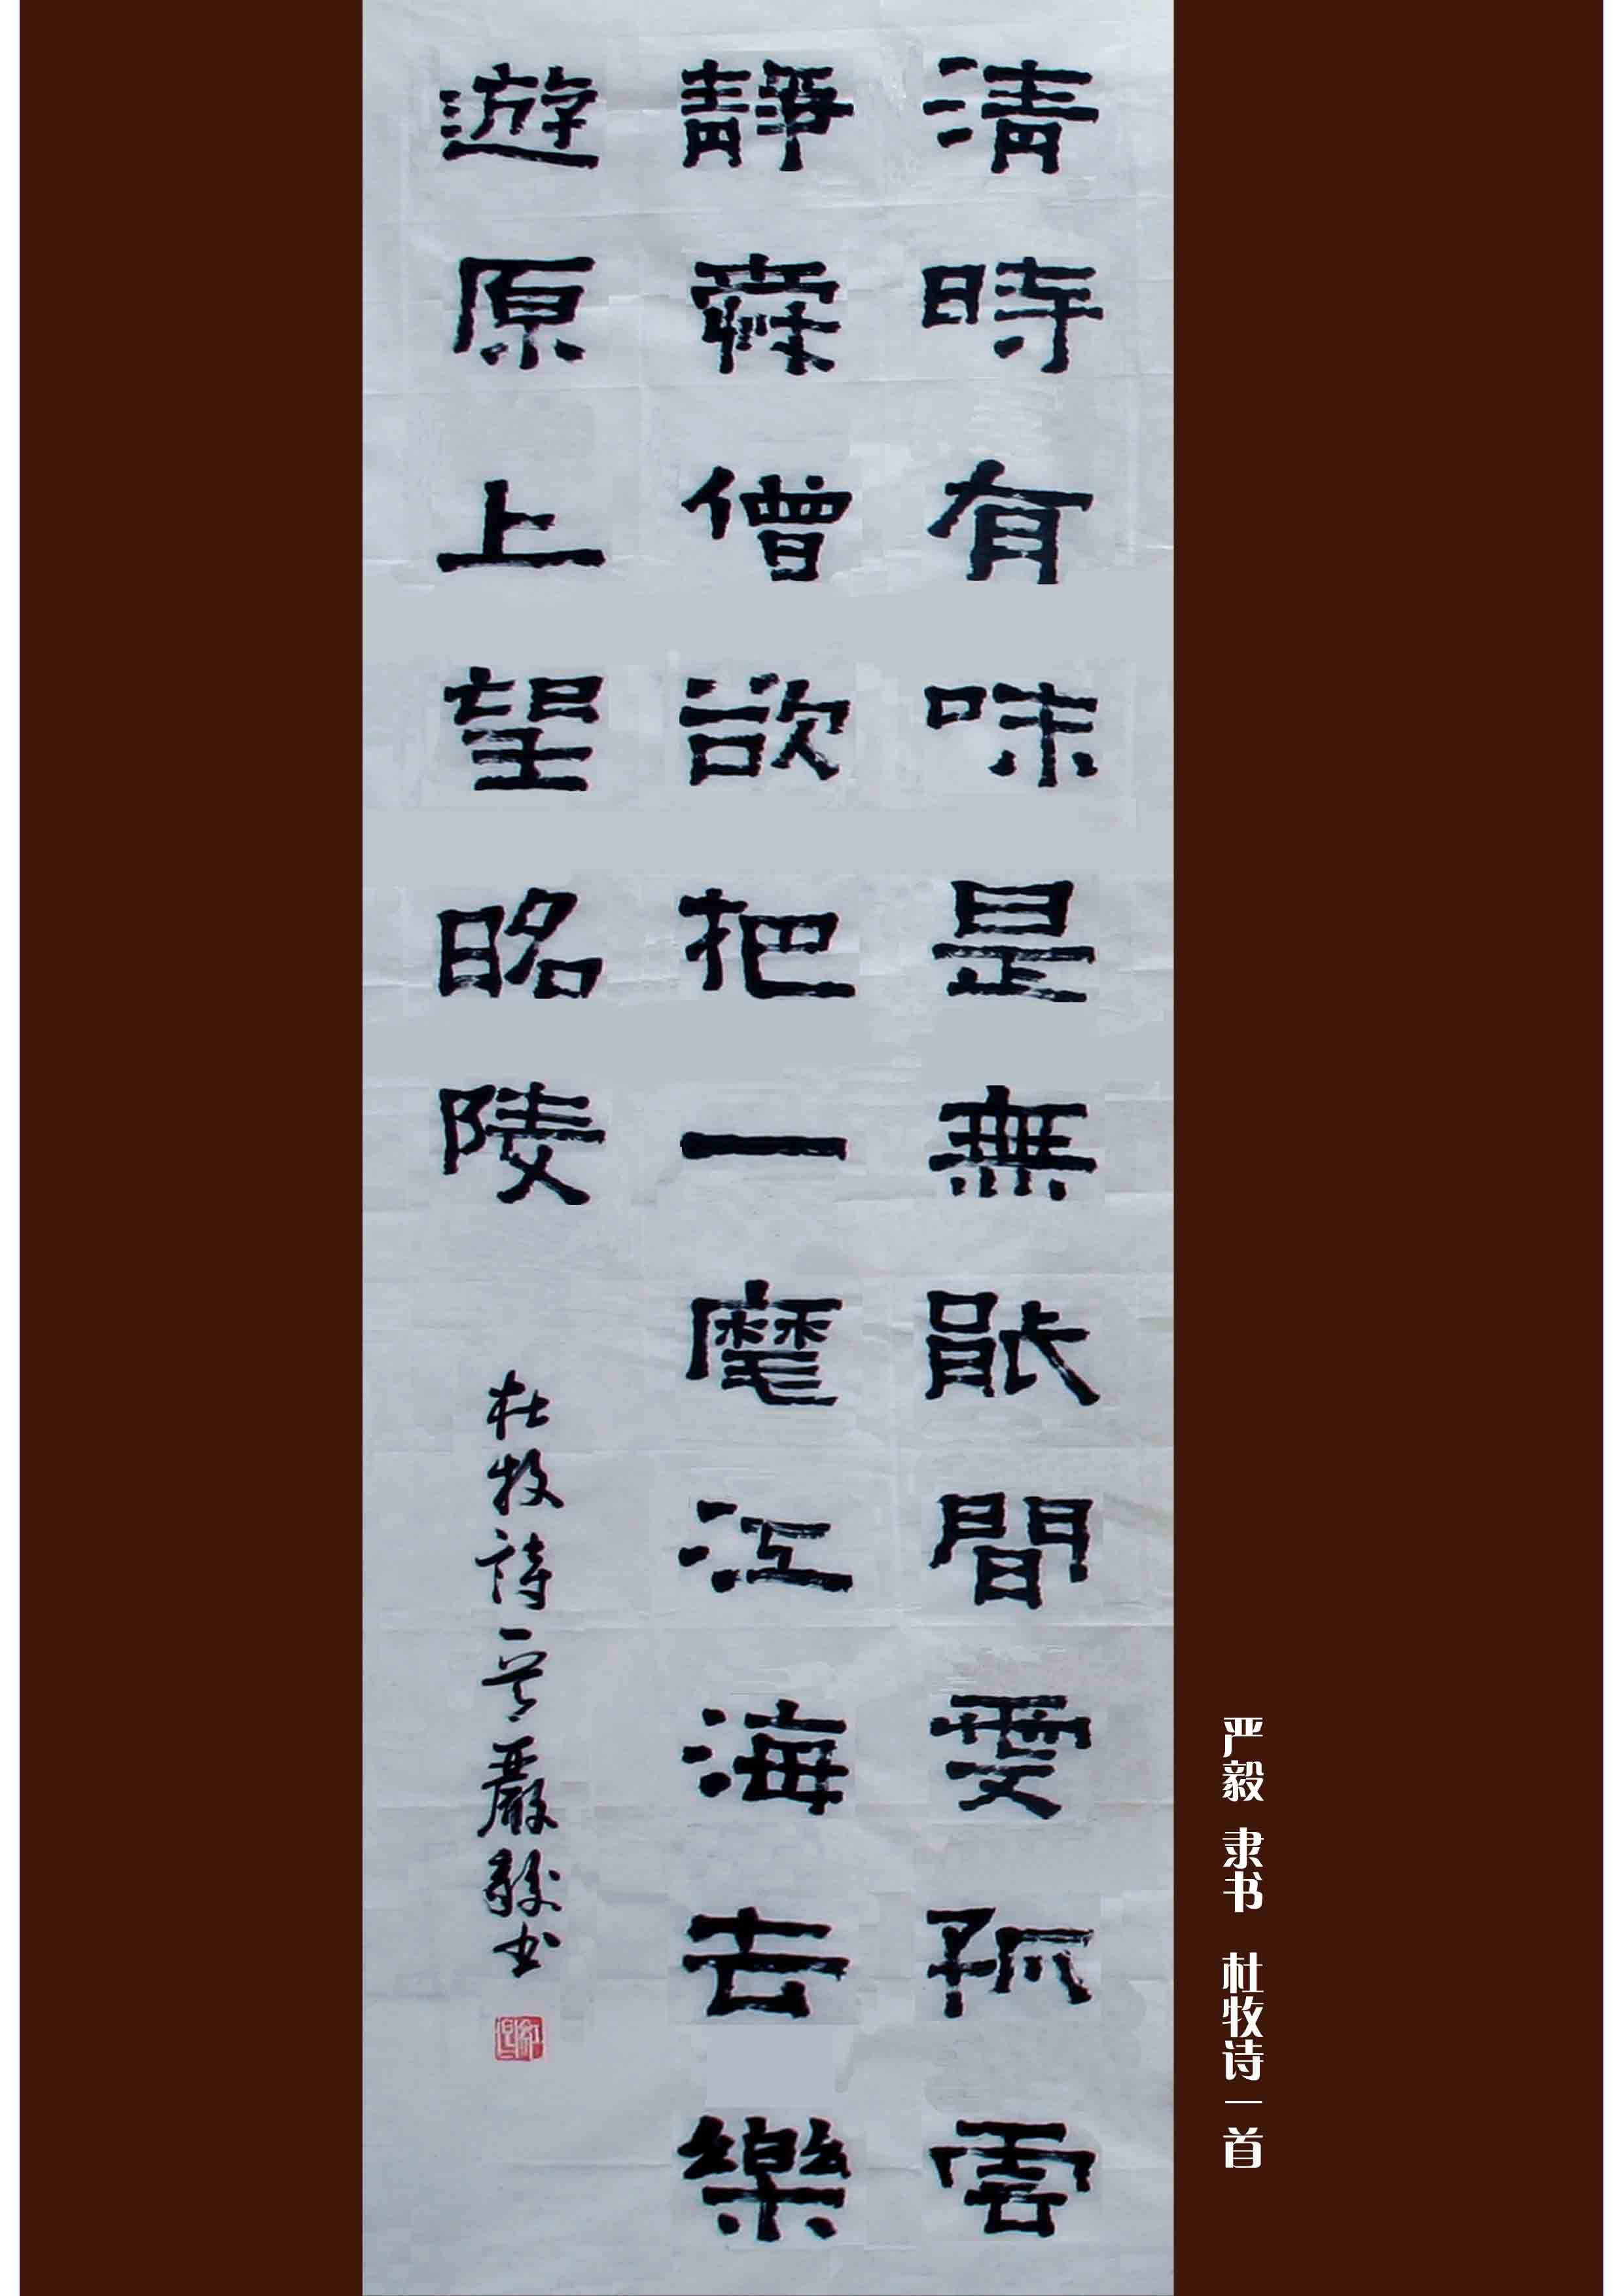 清時有味是無能間愛孤雲
靜舜僧欲把一麾江海去樂
遊原上望昭陵
杜牧詩一首嚴毅书
严毅 隶书 杜牧诗一首